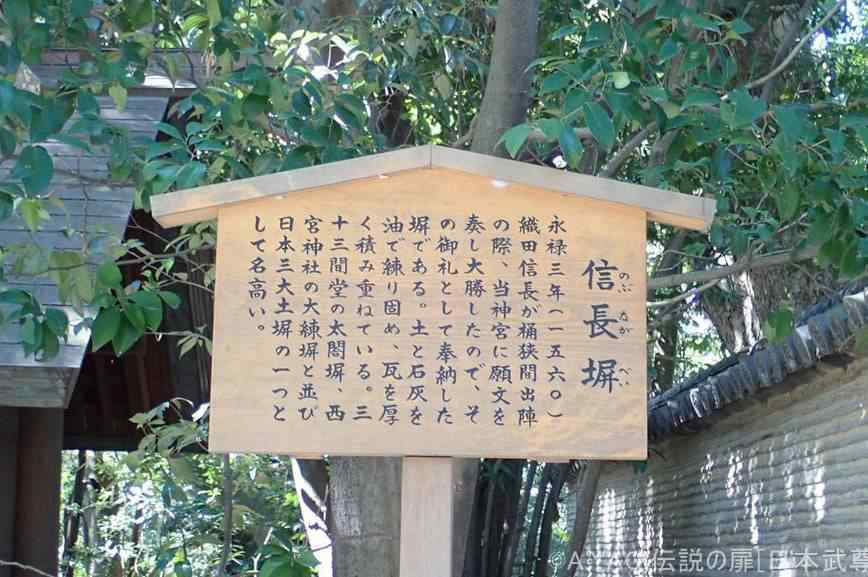 信長塀
のぶ なが べい
永禄三年(一五六〇)
織田信長が桶狭間出陣
の際、当神宮に願文を
奏し大勝したので、そ
の御礼として奉納した
塀である。土と石灰を
油で練り固め、瓦を厚
く積み重ねている。三
十三間堂の太閤塀、西
宮神社の大練塀と並び
日本三大土塀の一つと
して名高い。
伝説の扉[日本武尊